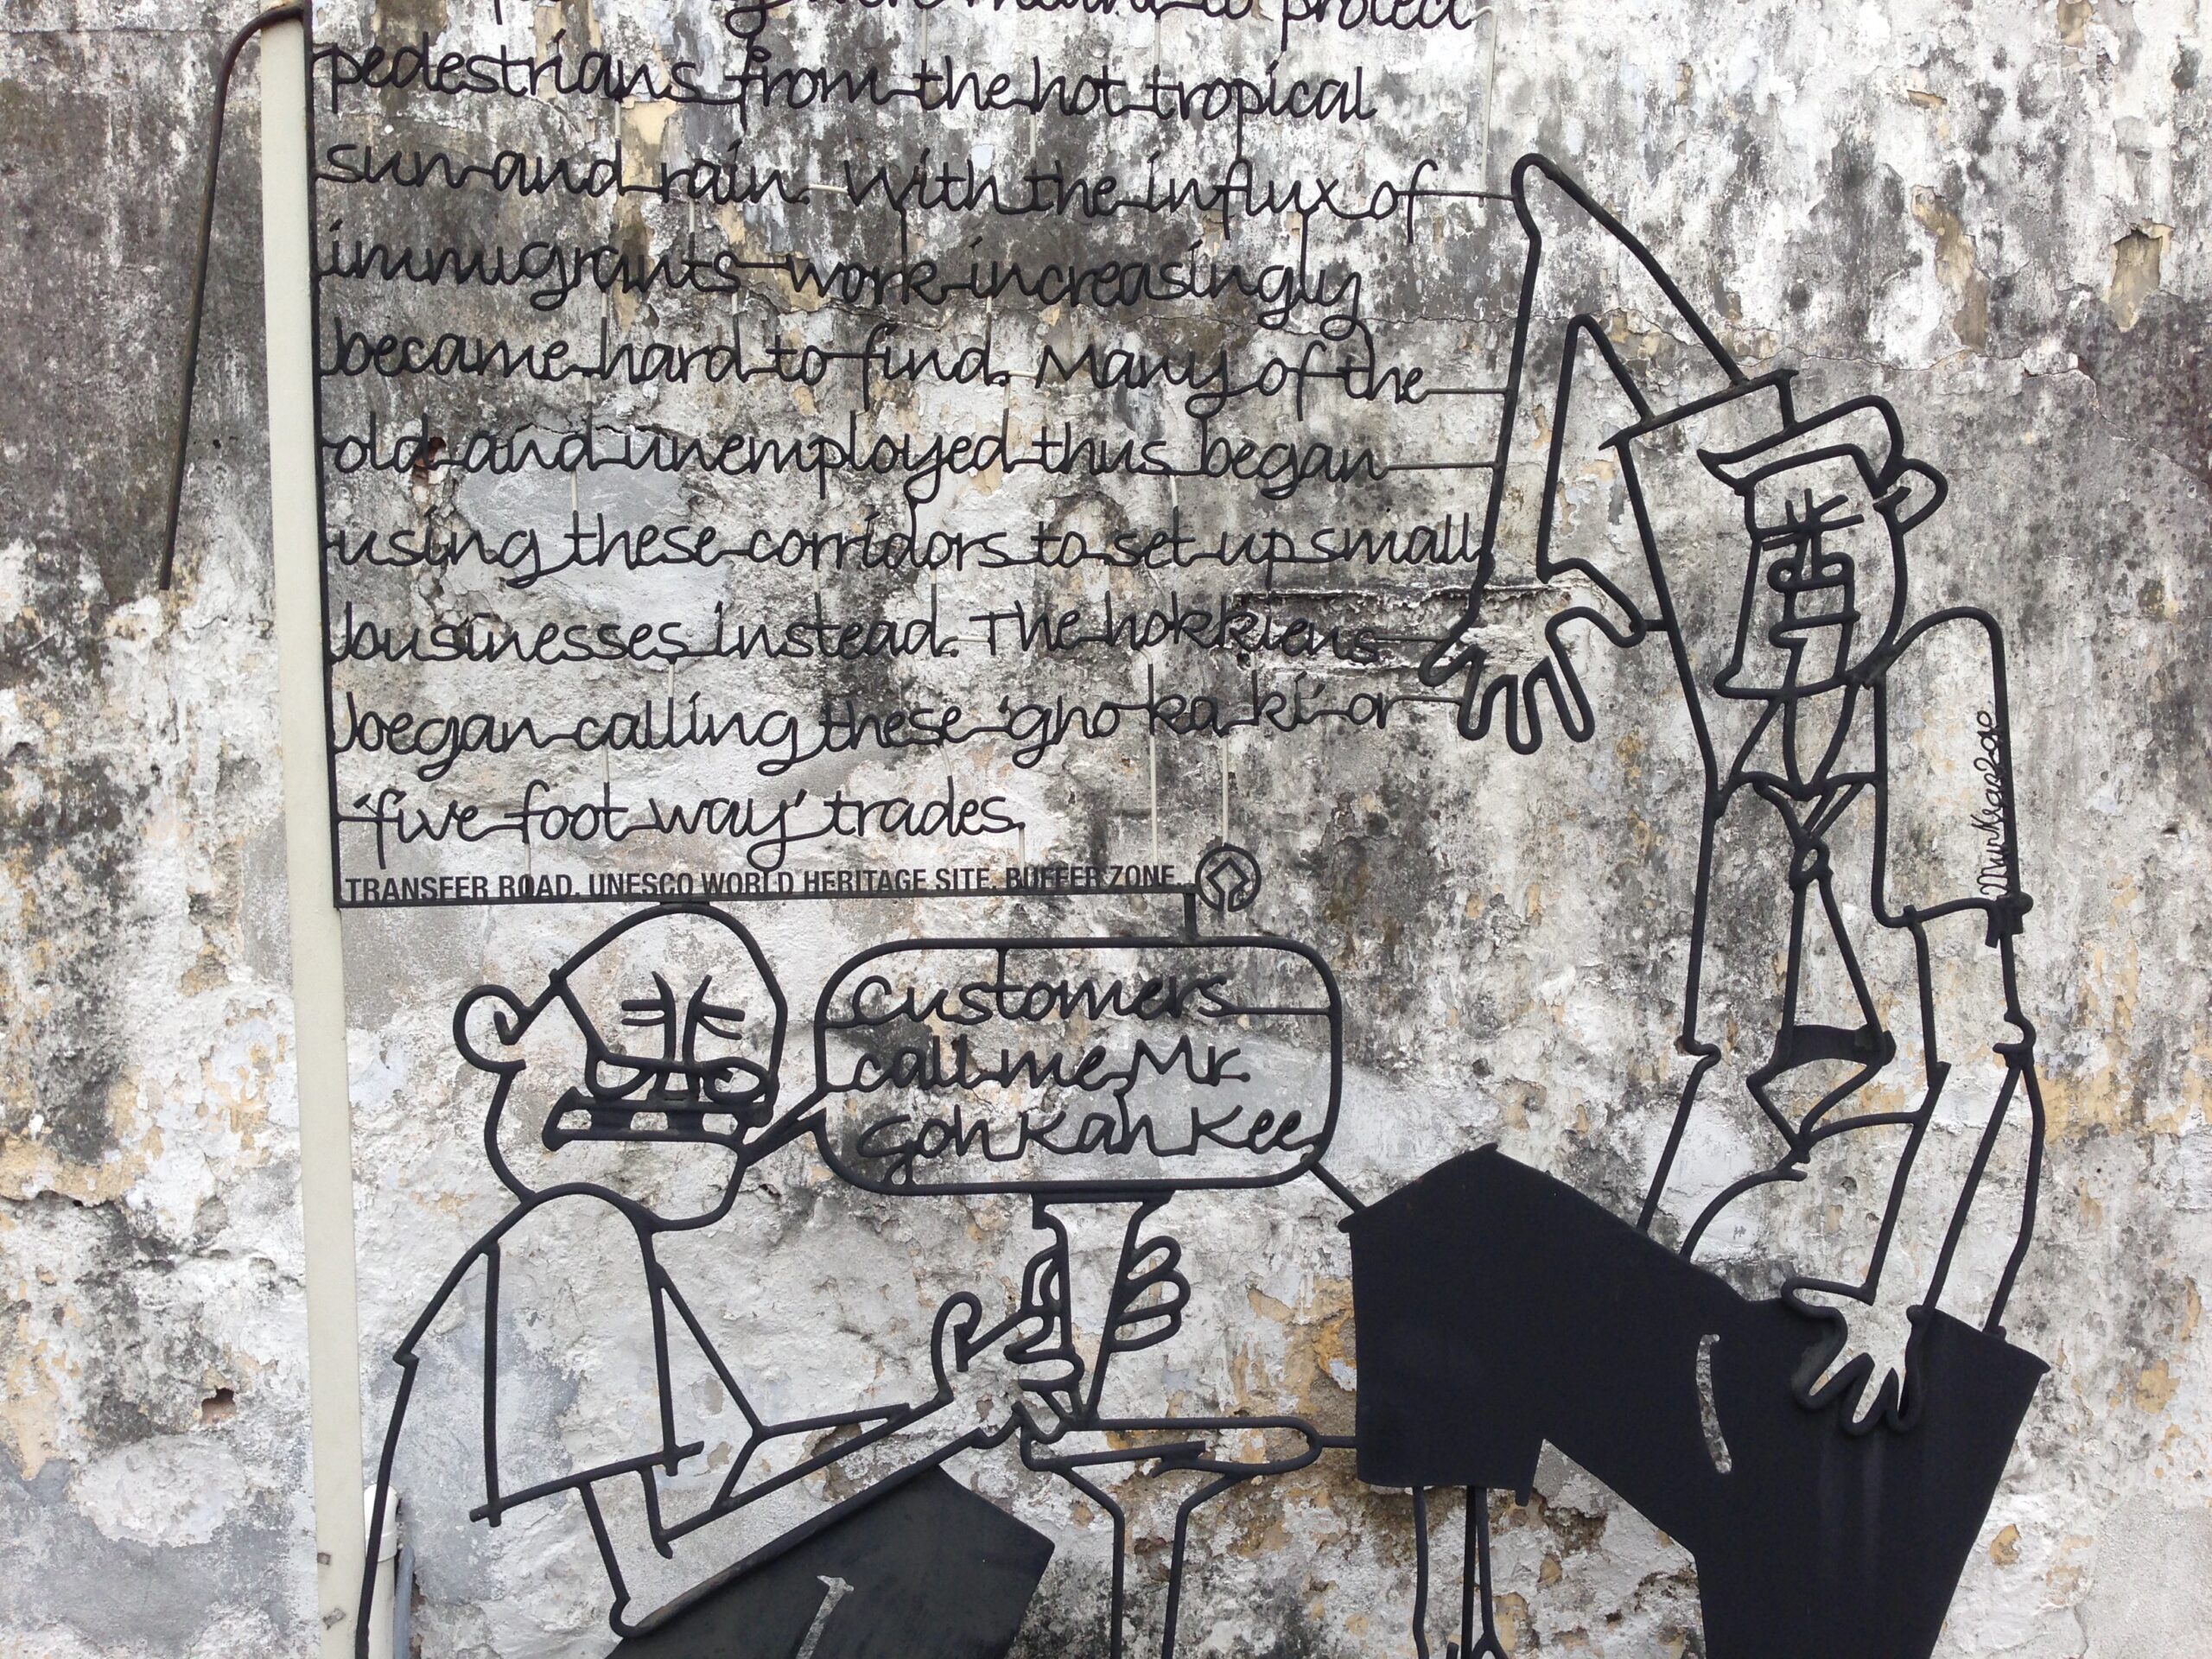 meant to protect
pedestrians from the hot tropical
sun and rain. With the influx of
immigrants work increasingly
became hard to find. Many of the
old and unemployed thus began
using these corridors to set up small
businesses instead. The hokkiens
began calling these 'gho ka ki' or
'five foot way' trades.
TRANSFER ROAD, UNESCO WORLD HERITAGE SITE, BUFFER ZONE
Customers
call me Mr.
Goh Kah Kee